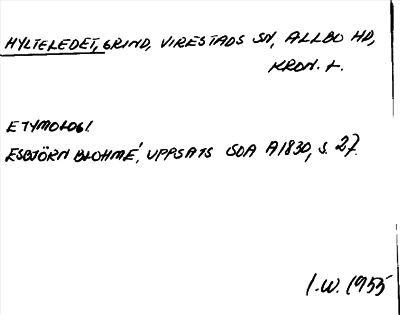 HYLTELEDET, GRIND, VIRESTADS SN, ALLBO HD,
KRON. L.
ETYMOLOGI
ESBJÖRN BLOHMÉ, UPPSATS SOA A1830, S. 27.
I.W. 1955